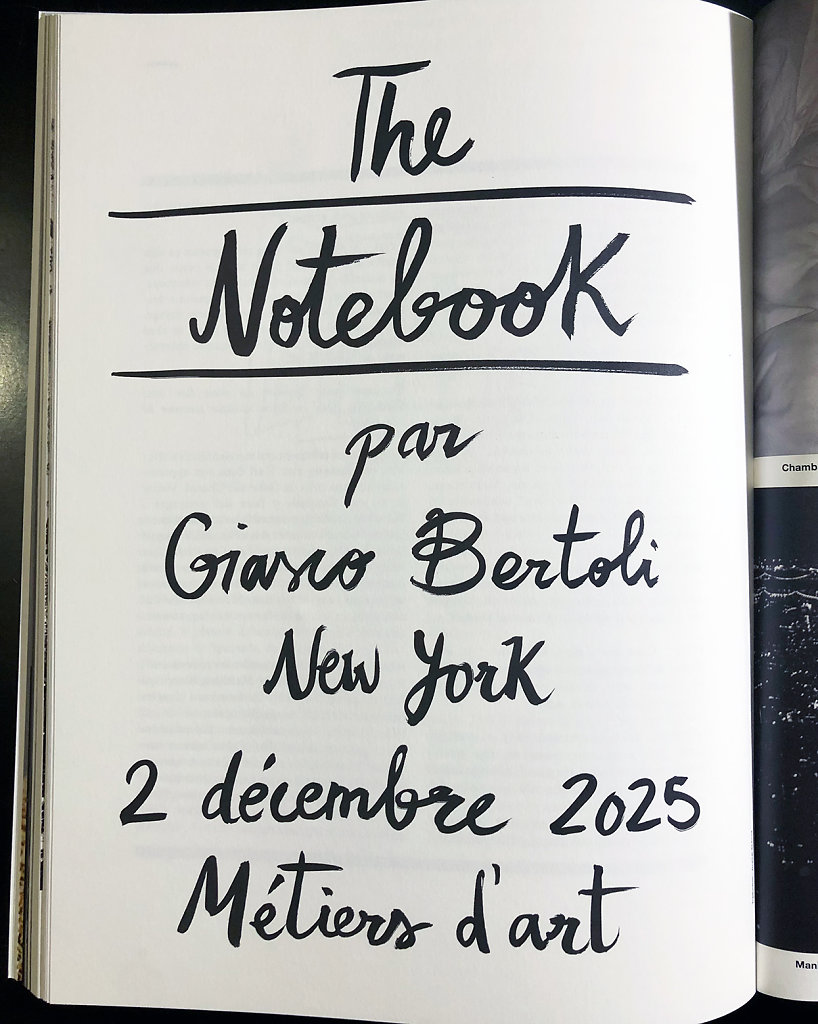 The
Notebook
par
Giasco Bertoli
New York
2 décembre 2025
Métiers d'art